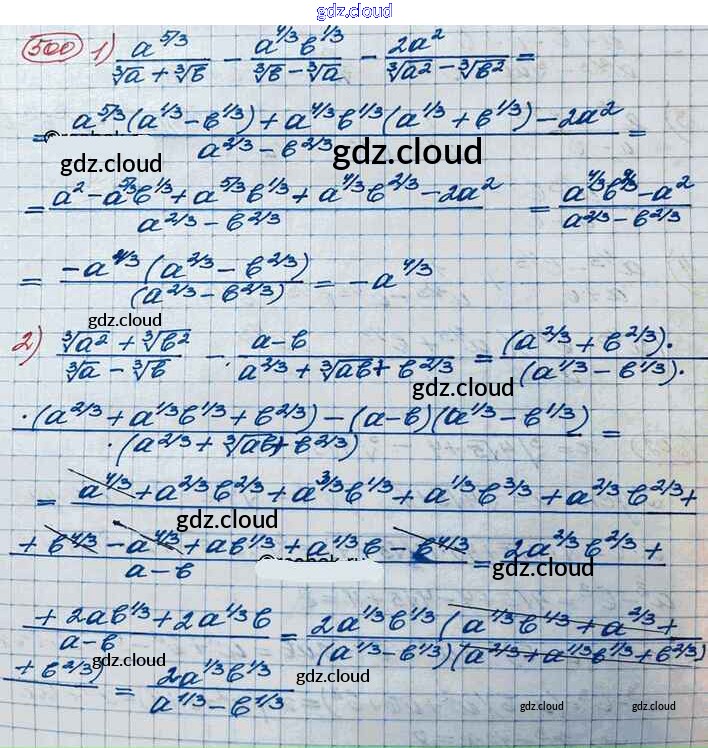 gdz.cloud
500 1) a^(5/3)/(∛a + ∛b) − a^(4/3)b^(1/3)/(∛b − ∛a) − 2a²/(∛a² − ∛b²) =
= (a^(5/3)(a^(1/3) − b^(1/3)) + a^(4/3)b^(1/3)(a^(1/3) + b^(1/3)) − 2a²)/(a^(2/3) − b^(2/3)) =
gdz.cloud gdz.cloud
= (a² − a^(5/3)b^(1/3) + a^(5/3)b^(1/3) + a^(4/3)b^(2/3) − 2a²)/(a^(2/3) − b^(2/3)) = (a^(4/3)b^(2/3) − a²)/(a^(2/3) − b^(2/3))
= −a^(4/3)(a^(2/3) − b^(2/3))/(a^(2/3) − b^(2/3)) = −a^(4/3)
gdz.cloud
2) (∛a² + ∛b²)/(∛a − ∛b) − (a − b)/(a^(2/3) + ∛ab + b^(2/3)) = (a^(2/3) + b^(2/3))·/(a^(1/3) − b^(1/3))·
gdz.cloud
·(a^(2/3) + a^(1/3)b^(1/3) + b^(2/3)) − (a − b)(a^(1/3) − b^(1/3))/·(a^(2/3) + ∛ab + b^(2/3)) =
= a^(4/3) + a^(2/3)b^(2/3) + a^(3/3)b^(1/3) + a^(1/3)b^(3/3) + a^(2/3)b^(2/3) +
gdz.cloud
+ b^(4/3) − a^(4/3) + ab^(1/3) + a^(1/3)b − b^(4/3)/(a − b) = 2a^(2/3)b^(2/3) +
gdz.cloud
+ 2ab^(1/3) + 2a^(1/3)b/(a − b) = 2a^(1/3)b^(1/3)(a^(1/3)b^(1/3) + a^(2/3) +/(a^(1/3) − b^(1/3))(a^(2/3) + a^(1/3)b^(1/3) + b^(2/3))
gdz.cloud
+ b^(2/3)) = 2a^(1/3)b^(1/3)/(a^(1/3) − b^(1/3))
gdz.cloud
gdz.cloud gdz.cloud